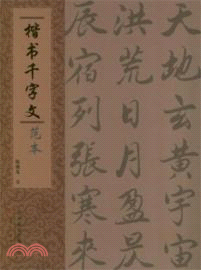 楷书千字文
范本
天地玄黄宇宙
洪荒日月盈昃
辰宿列張寒來
三民